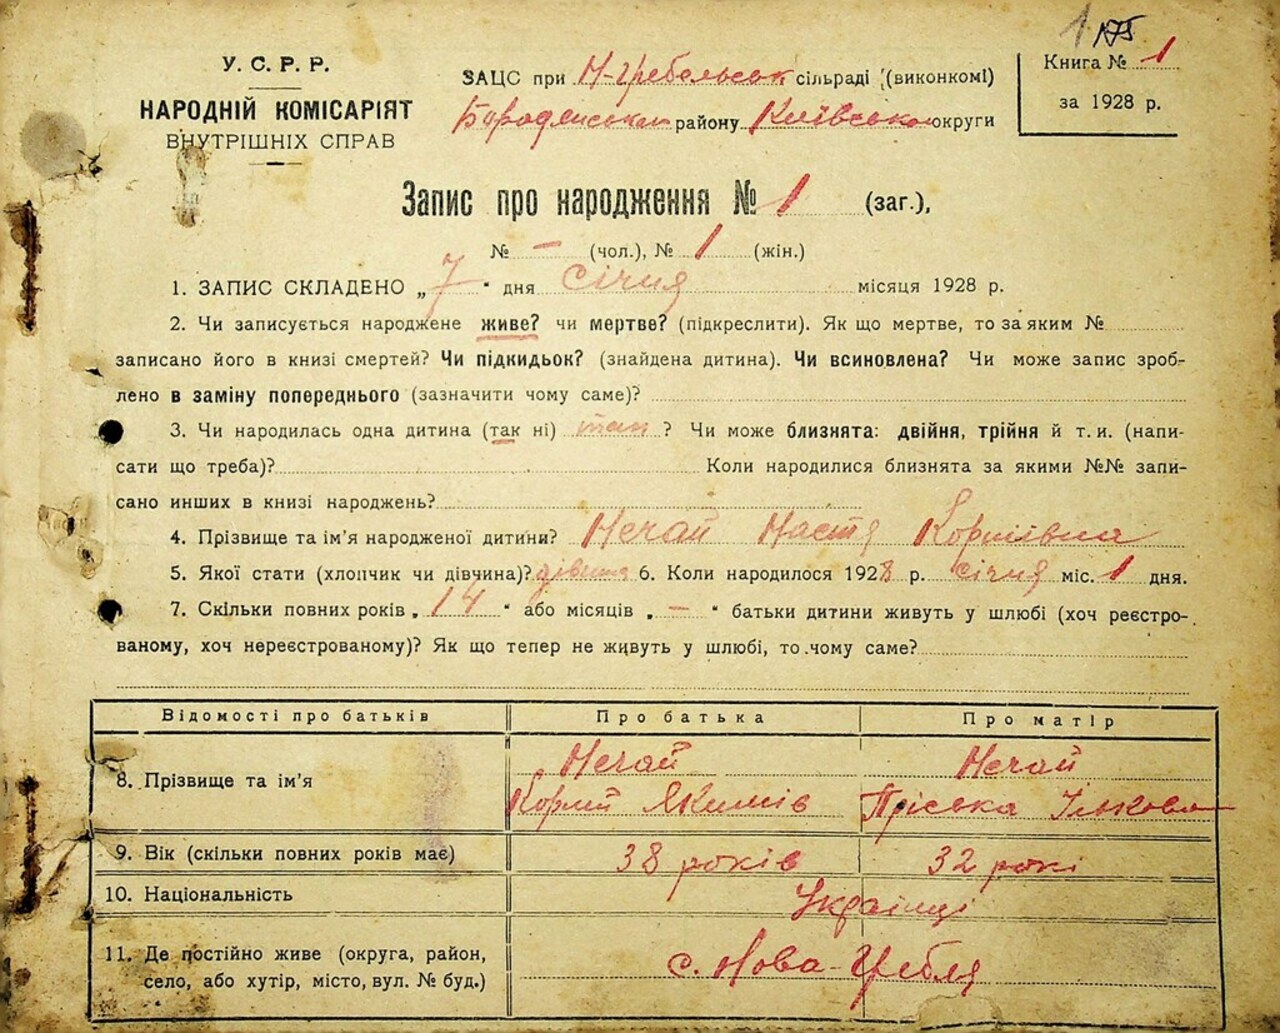 1 175
У. С. Р. Р.
НАРОДНІЙ КОМІСАРІЯТ
ВНУТРІШНІХ СПРАВ
ЗАЦС при Н-Гребельськ сільраді (виконкомі)
Бородянськом району Київської округи
Книга № 1
за 1928 р.
Запис про народження № 1 (заг.),
№ — (чол.), № 1 (жін.)
1. ЗАПИС СКЛАДЕНО „7" дня січня місяця 1928 р.
2. Чи записується народжене живе? чи мертве? (підкреслити). Як що мертве, то за яким №
записано його в книзі смертей? Чи підкидьок? (знайдена дитина). Чи всиновлена? Чи може запис зроб-
лено в заміну попереднього (зазначити чому саме)?
3. Чи народилась одна дитина (так ні) так ? Чи може близнята: двійня, трійня й т. и. (напи-
сати що треба)? Коли народилися близнята за якими №№ запи-
сано инших в книзі народжень?
4. Прізвище та ім'я народженої дитини? Нечай Настя Корніївна
5. Якої стати (хлопчик чи дівчина)? дівчина 6. Коли народилося 1928 р. січня міс. 1 дня.
7. Скільки повних років „14" або місяців „—" батьки дитини живуть у шлюбі (хоч реєстро-
ваному, хоч нереєстрованому)? Як що тепер не живуть у шлюбі, то чому саме?
Відомості про батьків Про батька Про матір
8. Прізвище та ім'я Нечай Нечай
Корній Якимів Пріська Ількова
9. Вік (скільки повних років має) 38 років 32 рокі
10. Національність Українці
11. Де постійно живе (округа, район,
село, або хутір, місто, вул. № буд.) с. Нова-Гребля